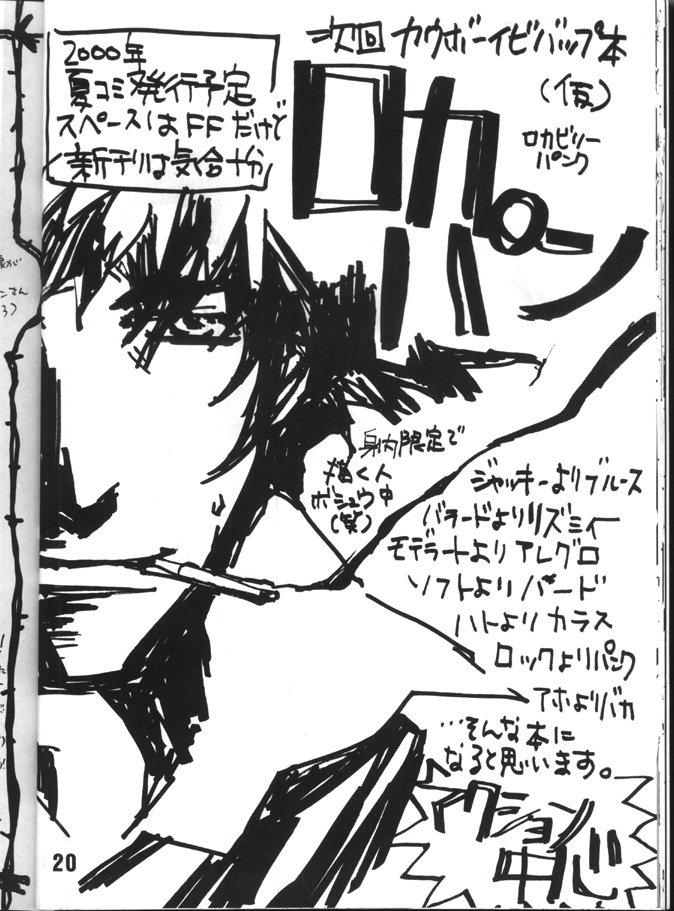 次回 カウボーイビバップ本
(仮)
ロカビリー
パンク
ロカビリー
パン
2000年
夏コミ発行予定
スペースはFFだけど
新刊は気合十分
身内限定で
描く人
ボシュウ中
(笑)
ジャッキーよりブルース
バラードよりリズミィー
モデラートよりアレグロ
ソフトよりハード
ハトよりカラス
ロックよりパンク
アホよりバカ
…そんな本に
なると思います。
アクション
中心
20